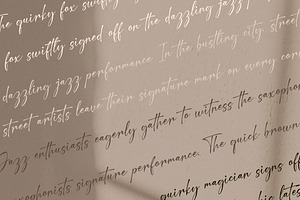 the quirky fox swiftly
fox swiftly signed off on the dazzling jazz
dazzling jazz performance In the bustling city street
street artists leave their signature mark on every
Jazz enthusiasts eagerly gather to witness the saxopho
saxophonists signature performance. The quick brown
quirky magician signs off